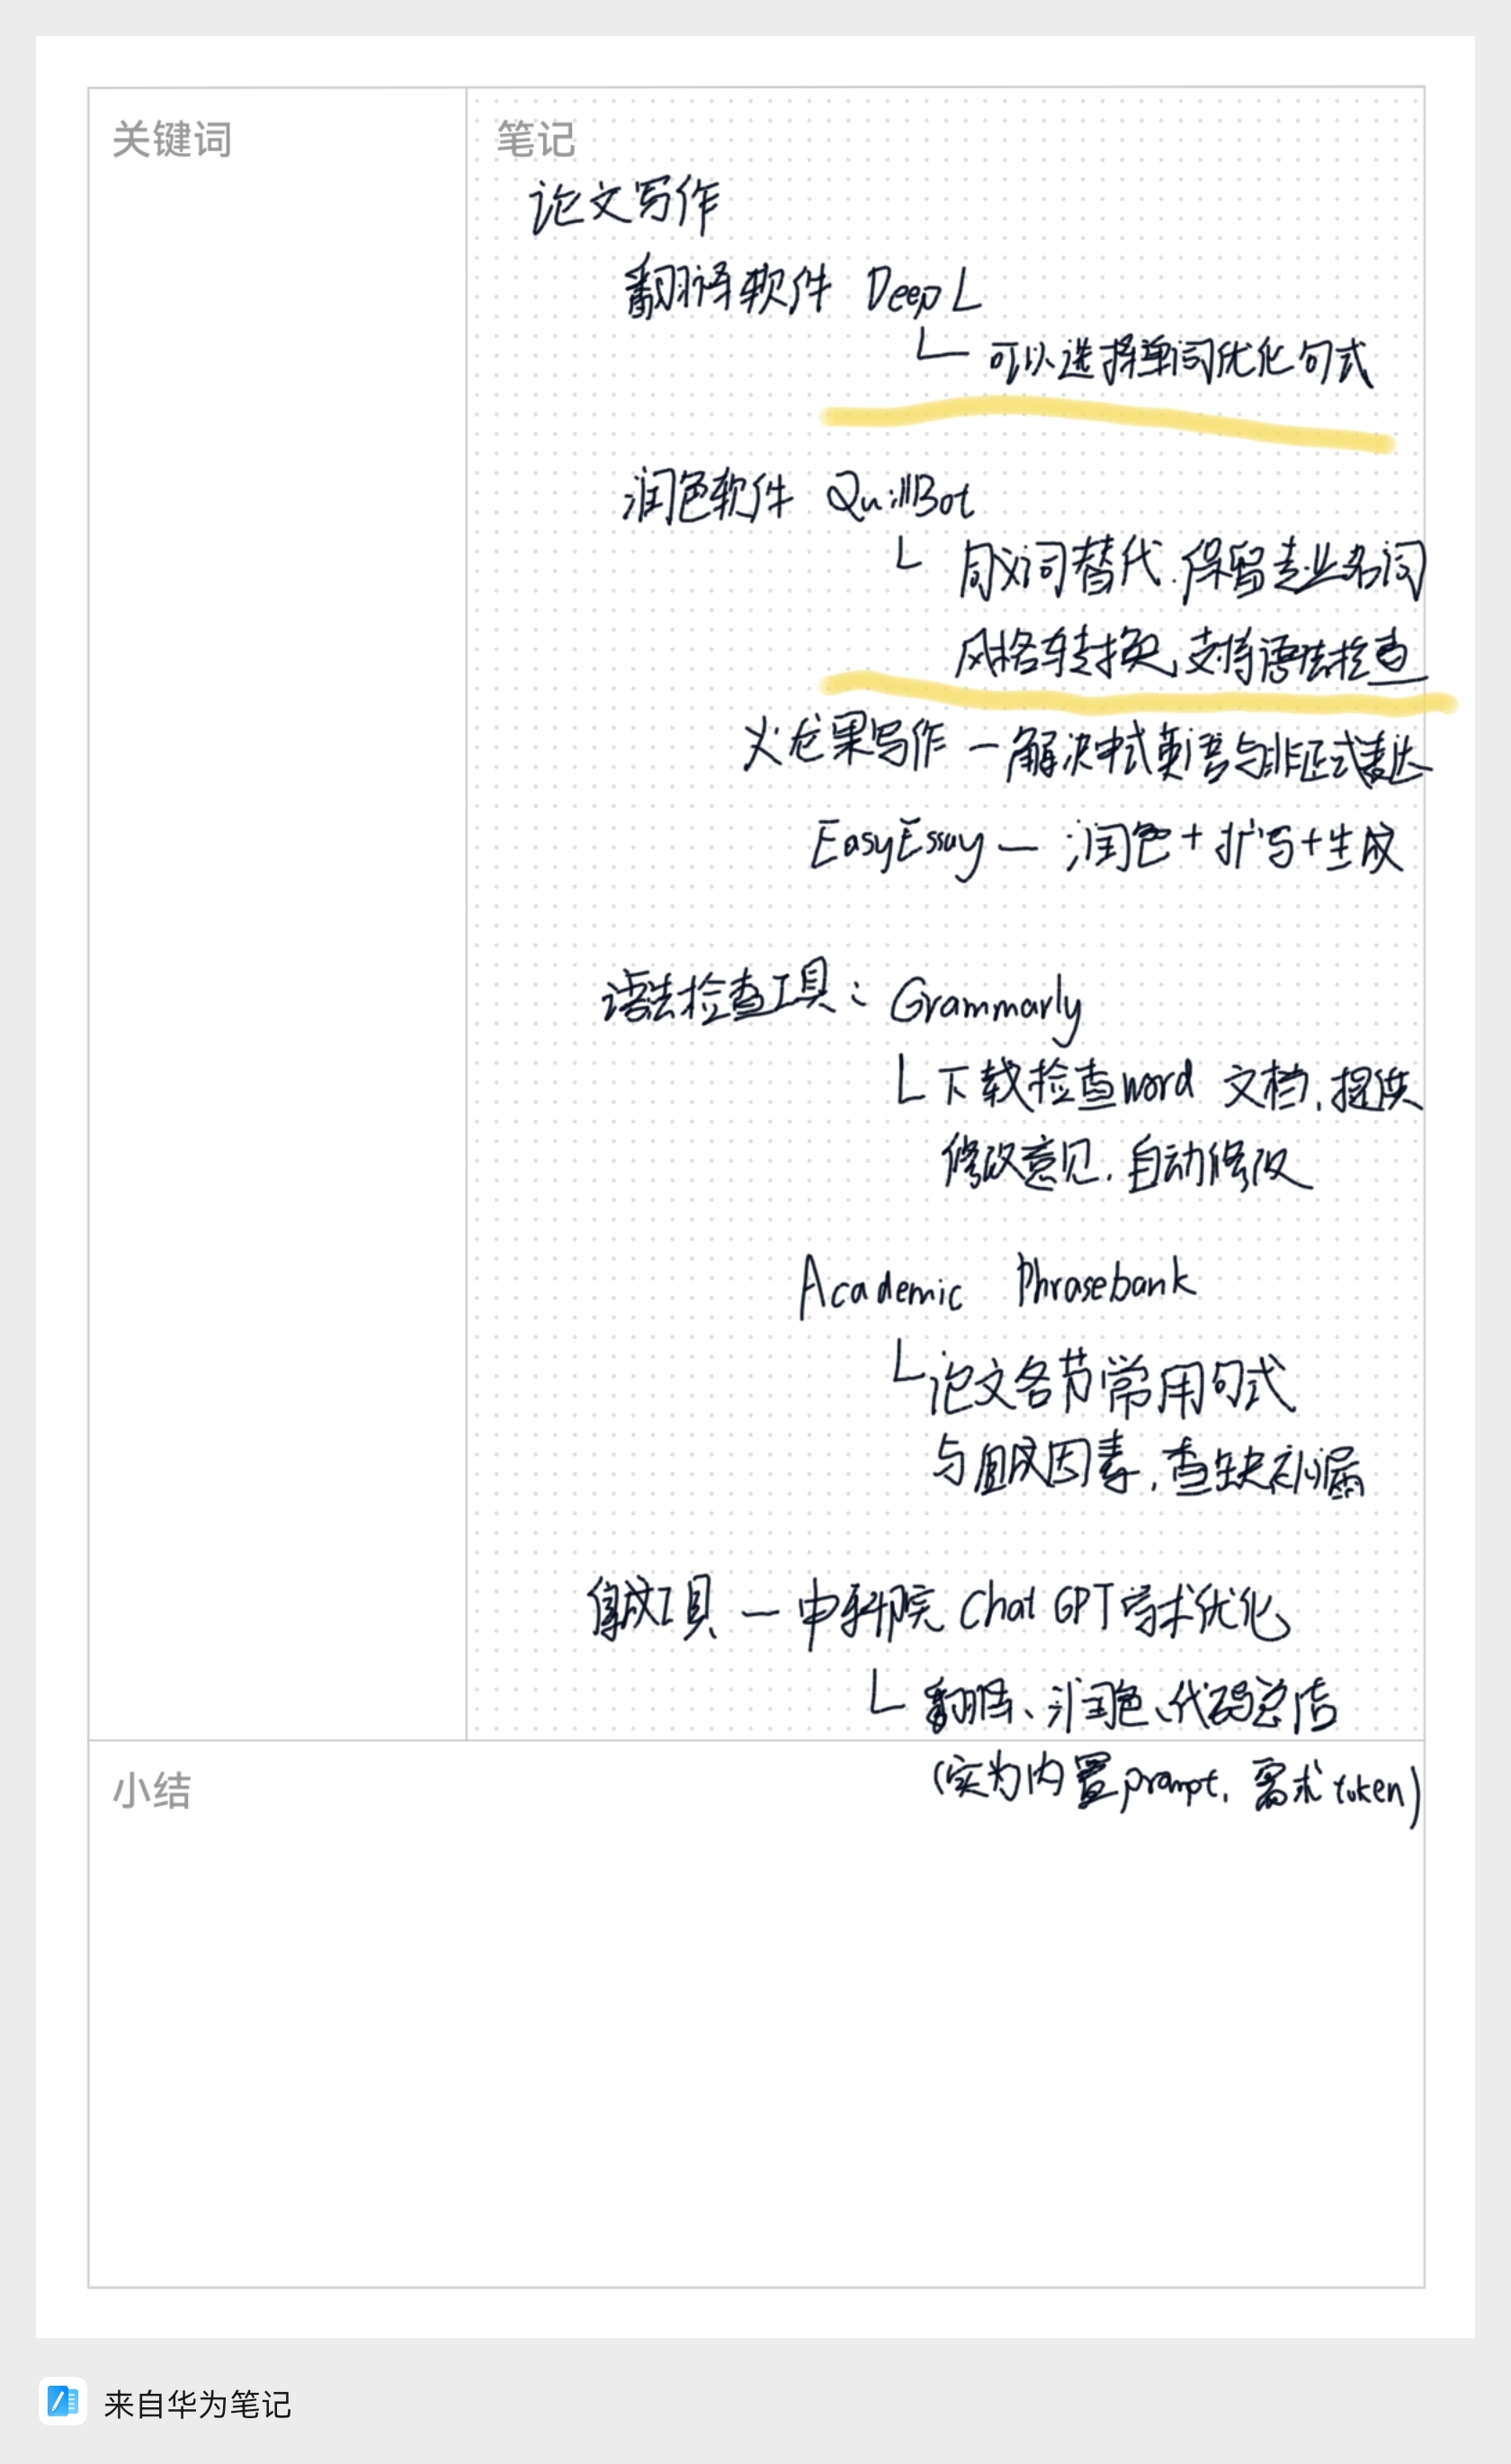 关键词
笔记
论文写作
翻译软件 DeepL
可以选择单词优化句式
润色软件 QuillBot
同义词替代.保留专业名词
风格转换,支持语法检查
火龙果写作—解决中式英语与非正式表达
EasyEssay—润色+扩写+生成
语法检查工具：Grammarly
下载检查word 文档,提供
修改意见,自动修改
Academic Phrasebank
论文各节常用句式
与组成因素,查缺补漏
集成工具—中科院 ChatGPT学术优化
翻译、润色、代码总结
(实为内置prompt, 需求token)
小结
来自华为笔记